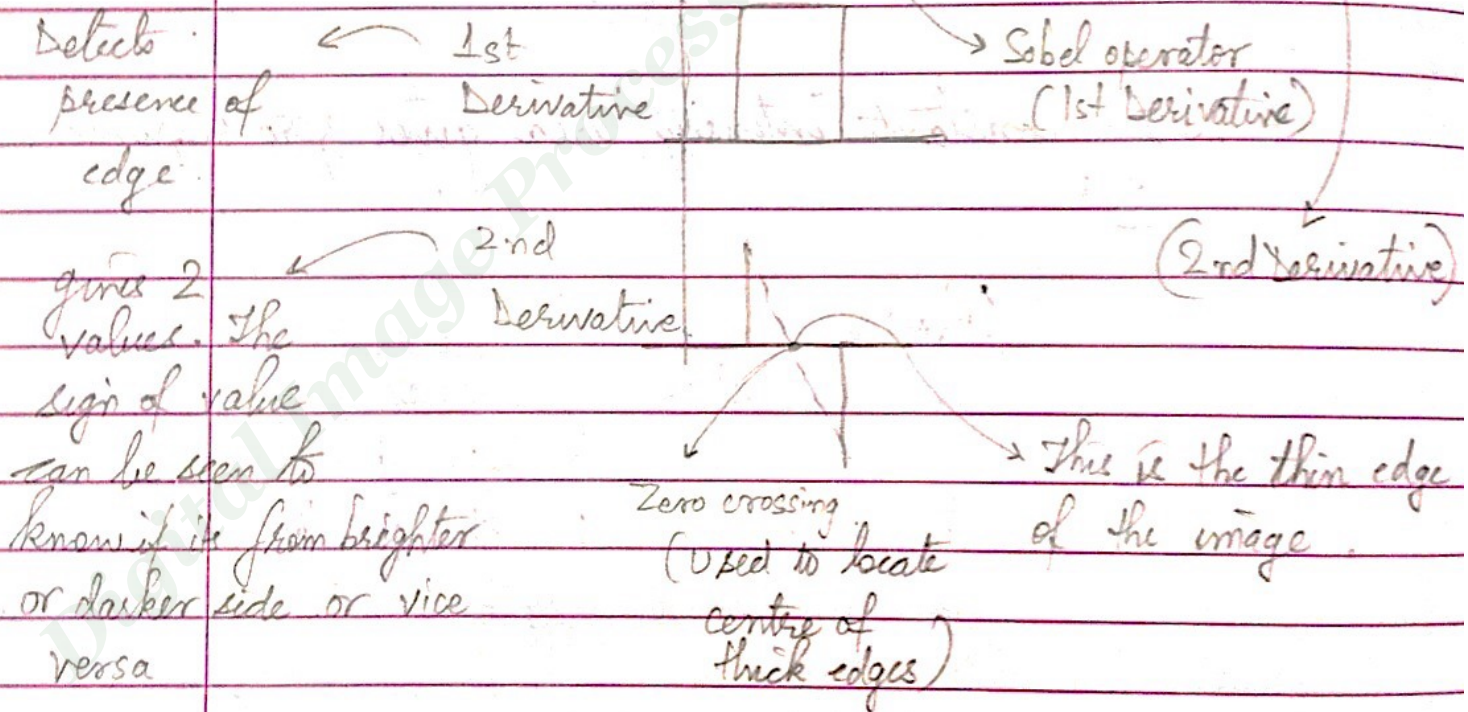 Detects
presence of
edge
1st
Derivative
Sobel operator
(1st Derivative)
gives 2
values. The
sign of value
can be seen to
know if it from brighter
or darker side or vice
versa
2nd
Derivative
(2nd Derivative)
Zero crossing
(Used to locate
centre of
thick edges)
This is the thin edge
of the image.
Digital Image Process